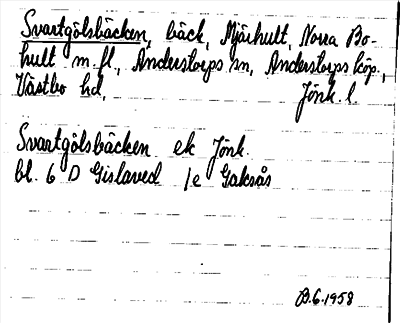 Svartgölsbäcken, bäck, Mjärhult, Norra Bo-
hult m.fl., Anderstorps sn, Anderstorps köp.,
Västbo hd, Jönk. l.
Svartgölsbäcken ek Jönk.
bl. 6 D Gislaved 1e Gaksås
B.G. 1958